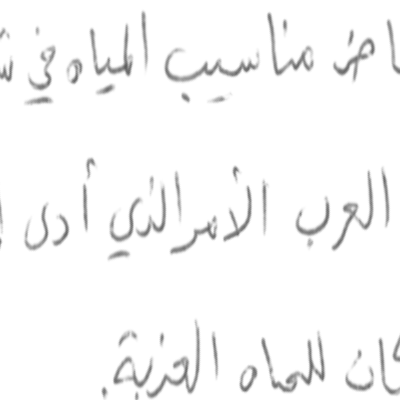 اض مناسيب المياه في ش
العرب الأمر الذي أدى إ
كان للمياه العذبة.